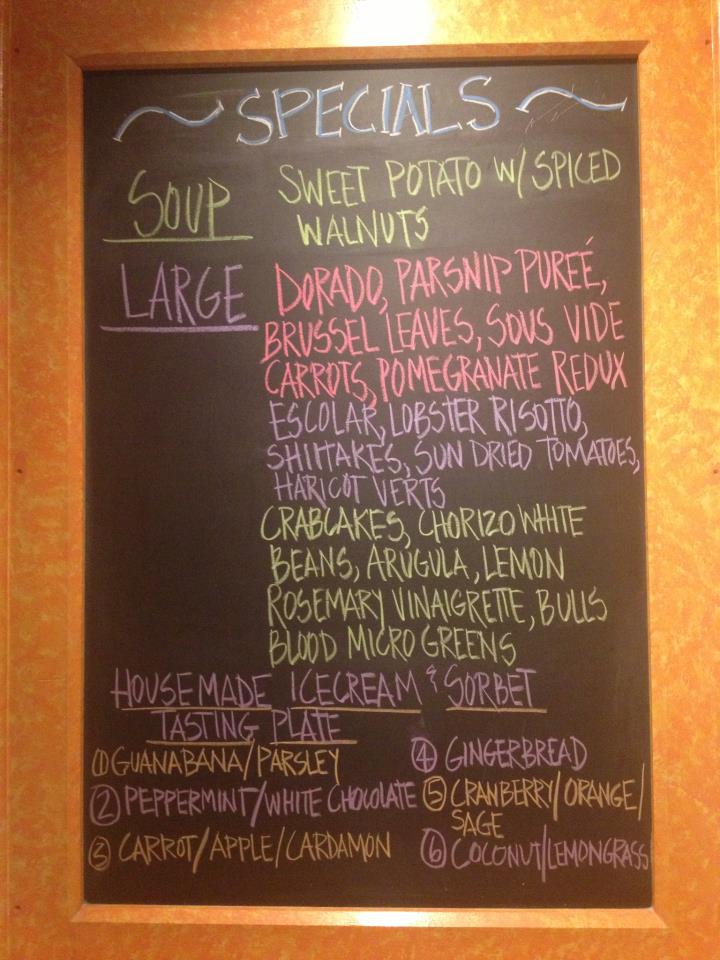 ~ SPECIALS ~
SOUP SWEET POTATO W/ SPICED
WALNUTS
LARGE DORADO, PARSNIP PUREÉ,
BRUSSEL LEAVES, SOUS VIDE
CARROTS, POMEGRANATE REDUX
ESCOLAR, LOBSTER RISOTTO,
SHIITAKES, SUN DRIED TOMATOES,
HARICOT VERTS
CRABCAKES, CHORIZO WHITE
BEANS, ARUGULA, LEMON
ROSEMARY VINAIGRETTE, BULLS
BLOOD MICRO GREENS
HOUSEMADE ICECREAM & SORBET
TASTING PLATE
① GUANABANA/PARSLEY
② PEPPERMINT/WHITE CHOCOLATE
③ CARROT/APPLE/CARDAMON
④ GINGERBREAD
⑤ CRANBERRY/ORANGE/
SAGE
⑥ COCONUT/LEMONGRASS